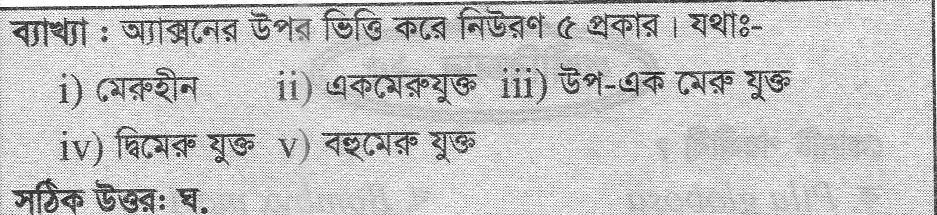 ব্যাখ্যা : অ্যাক্সনের উপর ভিত্তি করে নিউরণ ৫ প্রকার । যথাঃ-
i) মেরুহীন ii) একমেরুযুক্ত iii) উপ-এক মেরু যুক্ত
iv) দ্বিমেরু যুক্ত v) বহুমেরু যুক্ত
সঠিক উত্তর: ঘ.